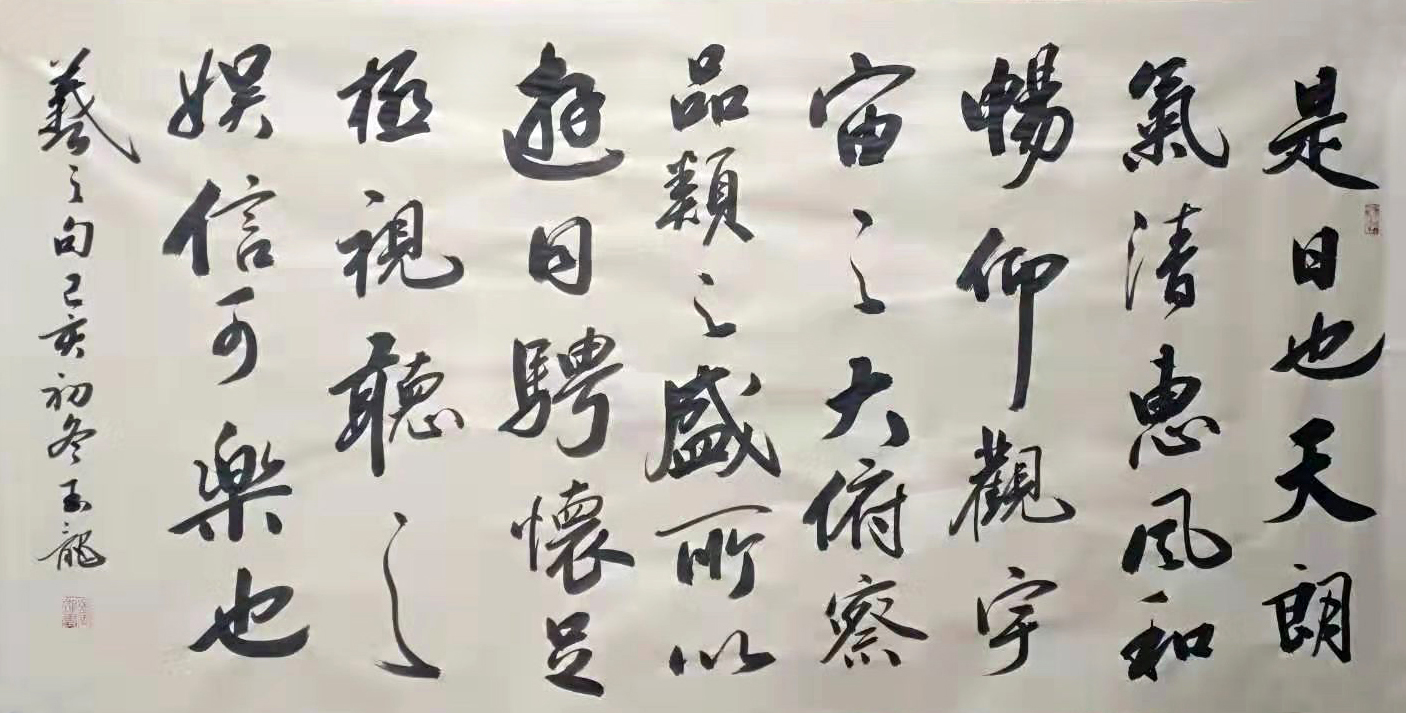 是日也天朗
氣清惠風和
暢仰觀宇
宙之大俯察
品類之盛所以
遊目騁懷足
極視聽之
娛信可樂也
羲之句己亥初冬玉龍